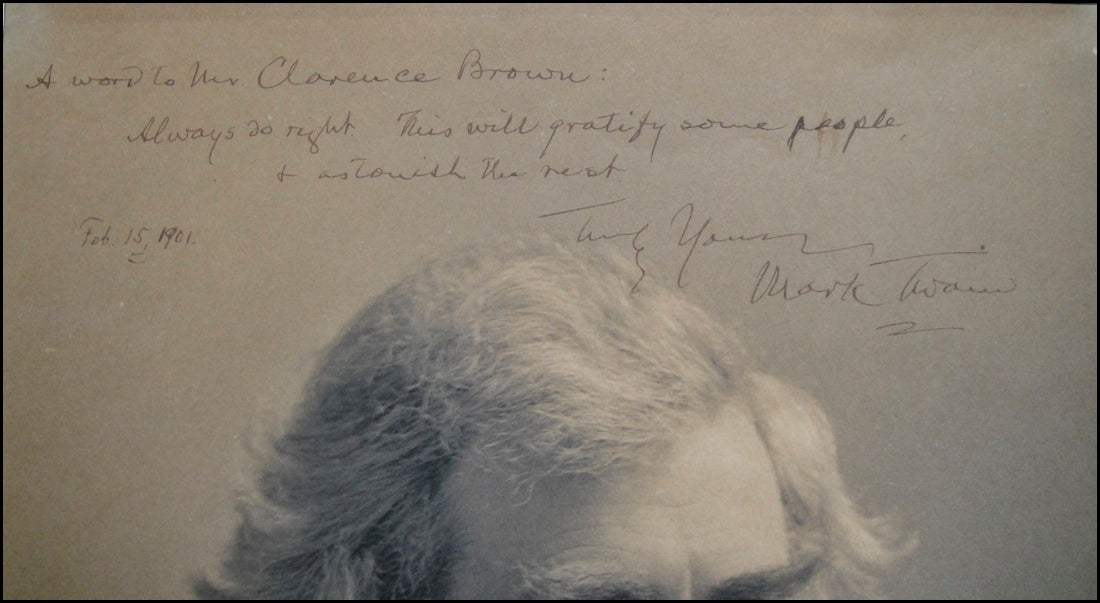 A word to Mr Clarence Brown:
Always do right. This will gratify some people,
& astonish the rest.
Truly Yours
Feb. 15, 1901.
Mark Twain